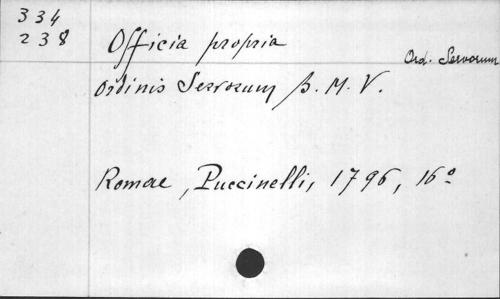 334
238
Officia propria
Ord. Servorum
Ordinis Servorum B. M. V.
Romae, Puccinelli, 1796, 16º